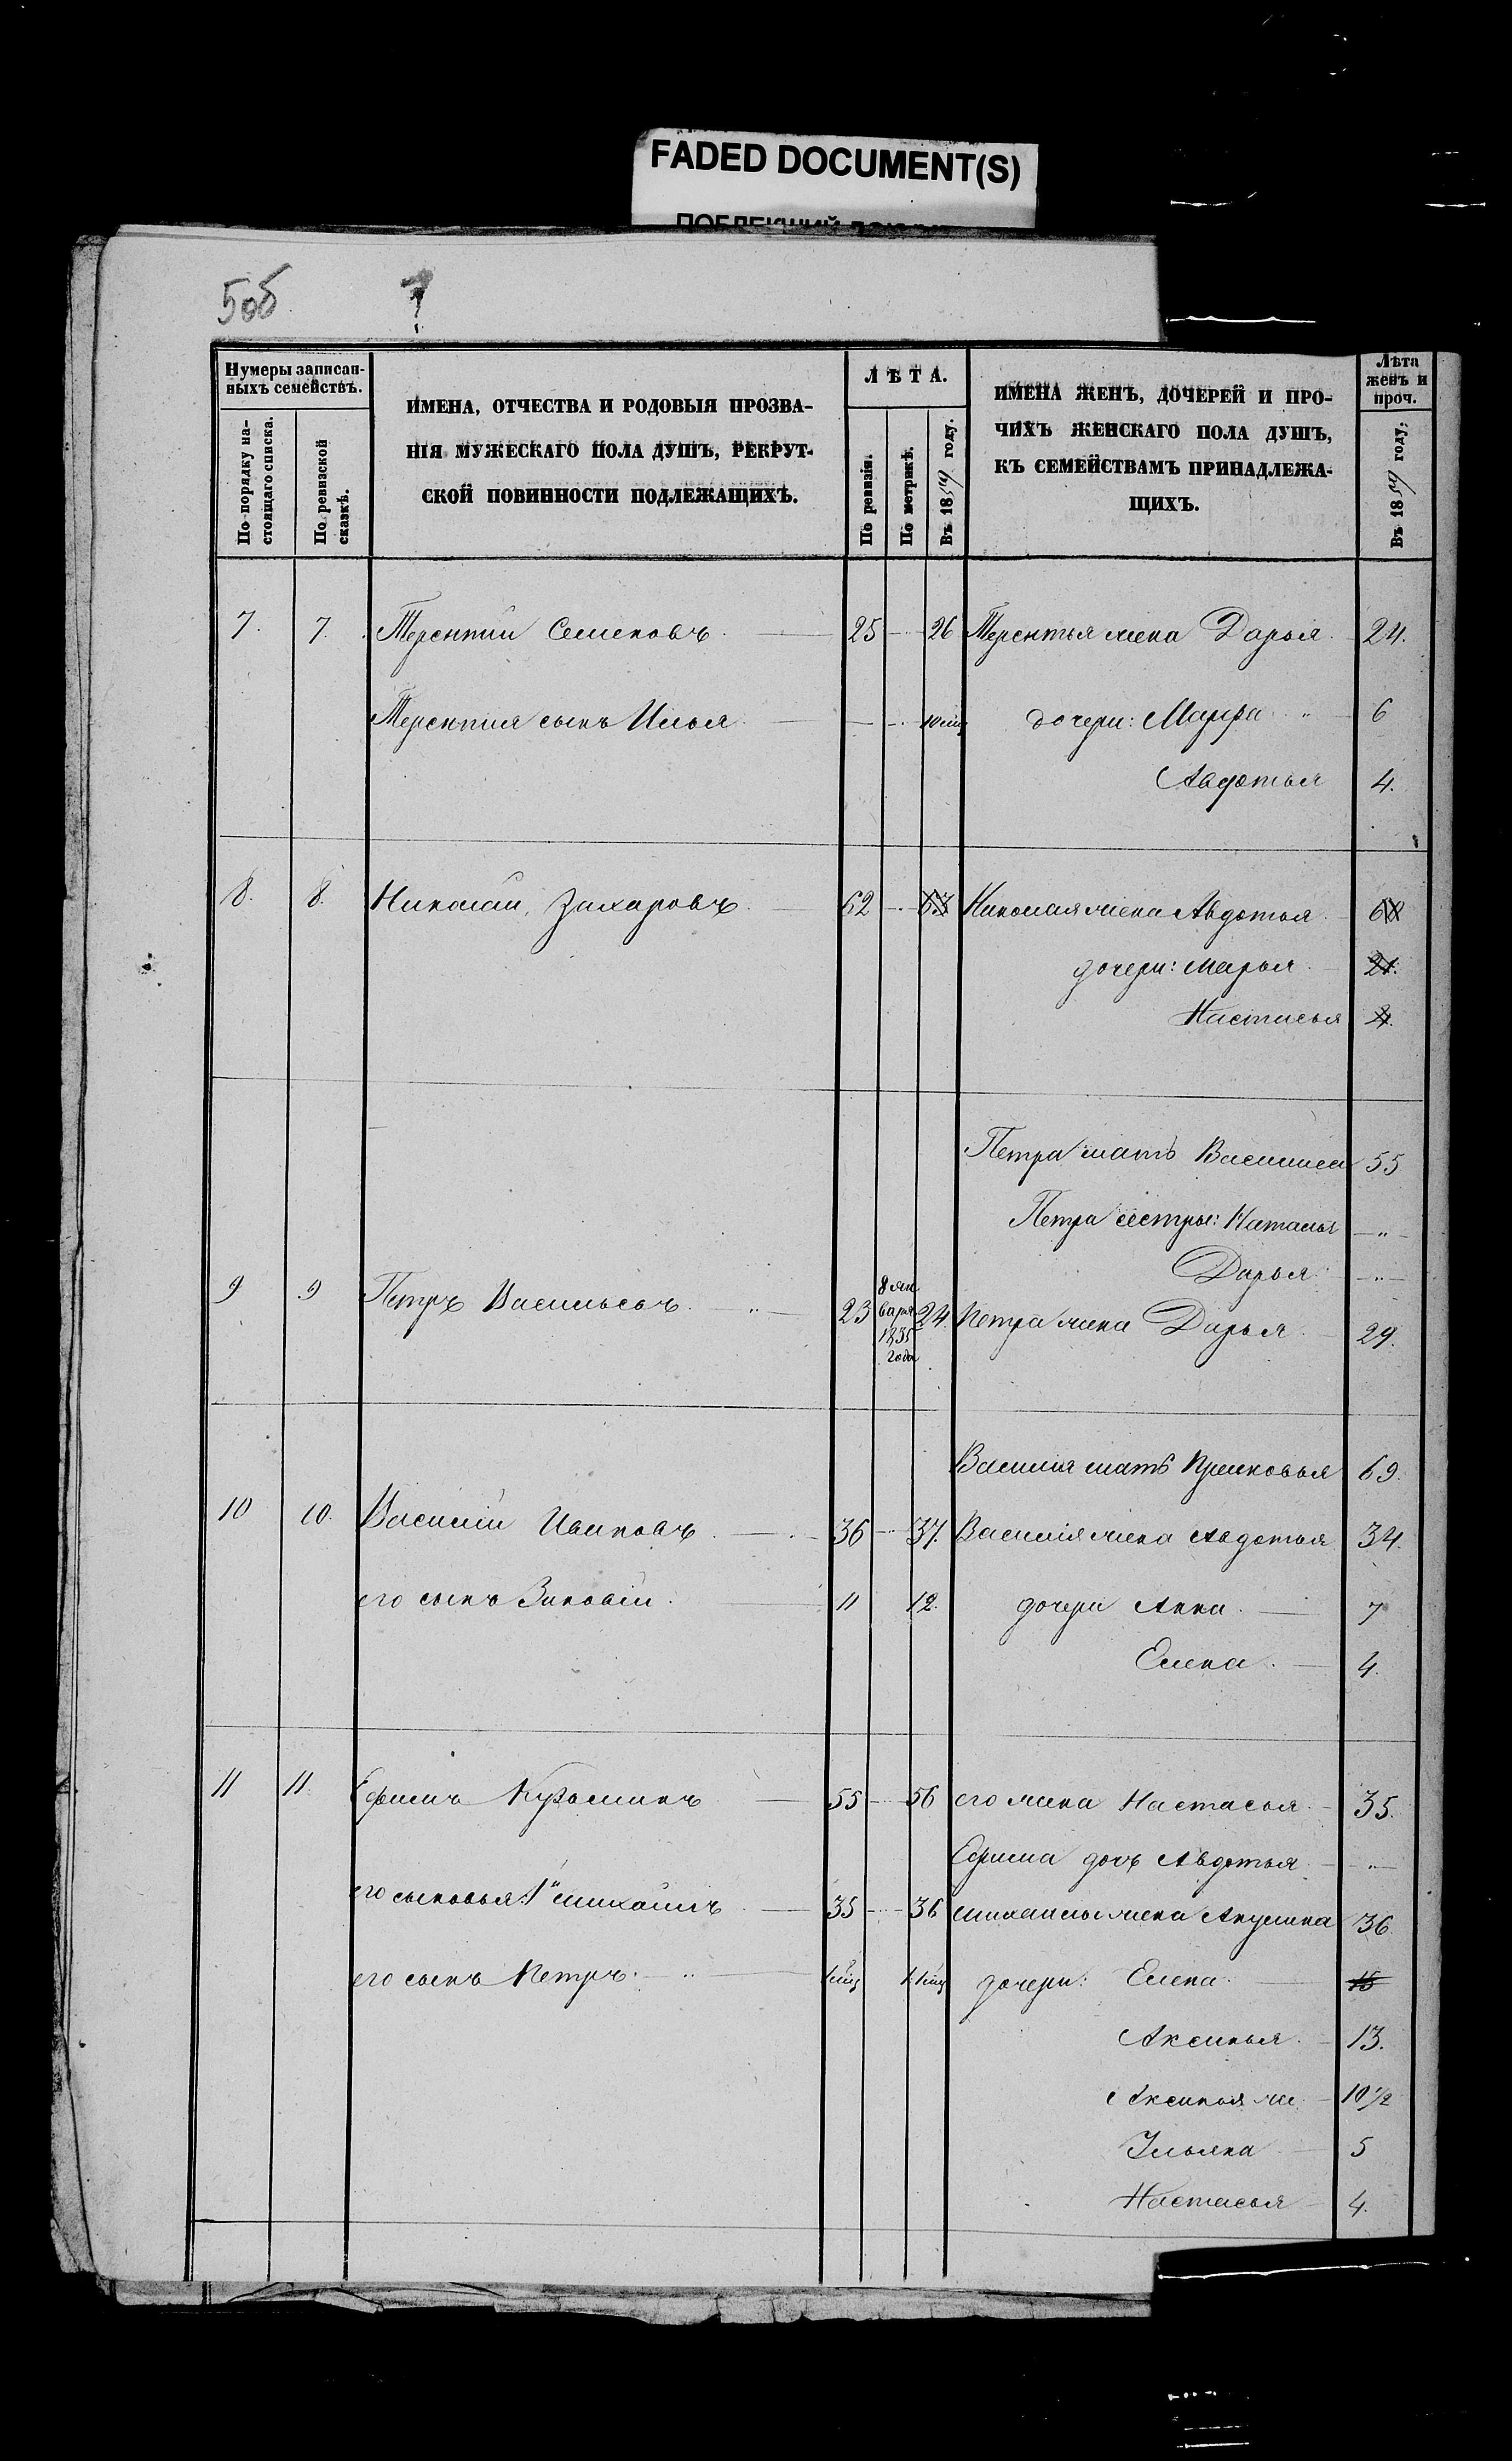 FADED DOCUMENT(S)
506
7
Нумеры записан-
ныхъ семействъ.
По порядку на-
стоящаго списка.
По ревизской
сказкѣ.
ИМЕНА, ОТЧЕСТВА И РОДОВЫЯ ПРОЗВА-
НІЯ МУЖЕСКАГО ПОЛА ДУШЪ, РЕКРУТ-
СКОЙ ПОВИННОСТИ ПОДЛЕЖАЩИХЪ.
ЛѢТА.
По ревизіи.
По метрикѣ.
Въ 1859 году.
ИМЕНА ЖЕНЪ, ДОЧЕРЕЙ И ПРО-
ЧИХЪ ЖЕНСКАГО ПОЛА ДУШЪ,
КЪ СЕМЕЙСТВАМЪ ПРИНАДЛЕЖА-
ЩИХЪ.
Лѣта
женъ и
проч.
Въ 1859 году.
7. 7. Терентій Семеновъ. 25 26 Терентья жена Дарья 24.
Терентія сынъ Илья 10 мѣц дочери: Марфа 6
Авдотья 4.
8. 8. Николай Захаровъ 62 63 Николая жена Авдотья 68
дочери: Марья 21.
Настасья
Петра мать Василиса 55
Петра сестры: Наталья "
Дарья "
9 9 Петръ Васильевъ. 23 8 января 1835 года 24. Петра жена Дарья 29.
Василія мать Прасковья 69.
10 10. Василій Ивановъ 36 37. Василія жена Авдотья 34.
его сынъ Зиновій. 11 12. дочери Анна. 7
Елена. 4.
11 11. Ефимъ Кузьминъ 55 56 его жена Настасья 35.
Ефима дочь Авдотья "
его сыновья: 1й Михаилъ 35 36 Михаилы жена Акулина 36
его сынъ Петръ. дочери: Елена 15
Аксинья. 13.
Аксинья ме. 10 1/2
Ульяна 5
Настасья 4.